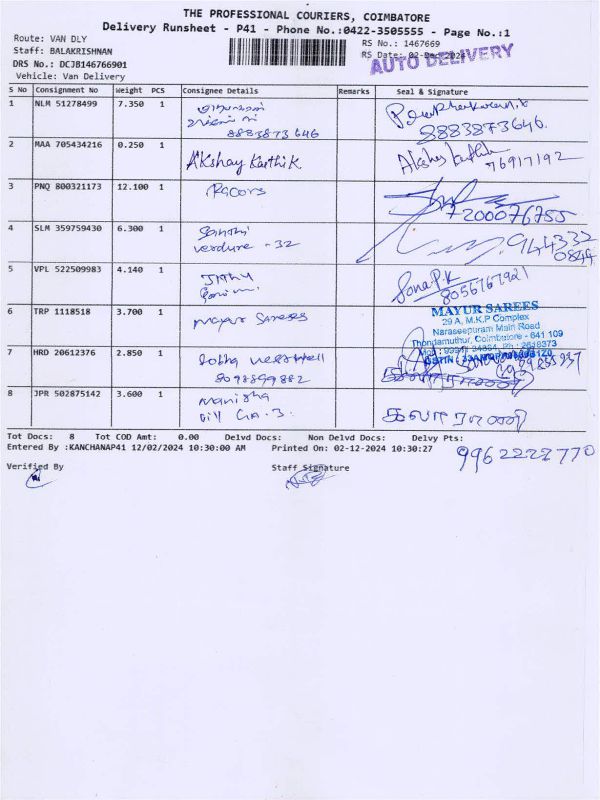 THE PROFESSIONAL COURIERS, COIMBATORE
Delivery Runsheet - P41 - Phone No.:0422-3505555 - Page No.:1
Route: VAN DLY
Staff: BALAKRISHNAN
DRS No.: DCJB146766901
Vehicle: Van Delivery
RS No.: 1467669
RS Date: 02-Dec-2024
AUTO DELIVERY
S No Consignment No Weight PCS Consignee Details Remarks Seal & Signature
1 NLM 51278499 7.350 1
8883873646
8883873646.
2 MAA 705434216 0.250 1 Akshay Karthik
76917192
3 PNQ 800321173 12.100 1 Racors
7200076755
4 SLM 359759430 6.300 1
verdure - 32
944332
0844
5 VPL 522509983 4.140 1
Sona P.K
8056767921
6 TRP 1118518 3.700 1 Mayur Sarees
MAYUR SAREES
29 A, M.K.P Complex
Naraseepuram Main Road
Thondamuthur, Coimbatore - 641 109
7 HRD 20612376 2.850 1
8098899882
8 JPR 502875142 3.600 1 Manisha
Tot Docs: 8 Tot COD Amt: 0.00 Delvd Docs: Non Delvd Docs: Delvy Pts:
Entered By :KANCHANAP41 12/02/2024 10:30:00 AM Printed On: 02-12-2024 10:30:27
9962222770
Verified By Staff Signature